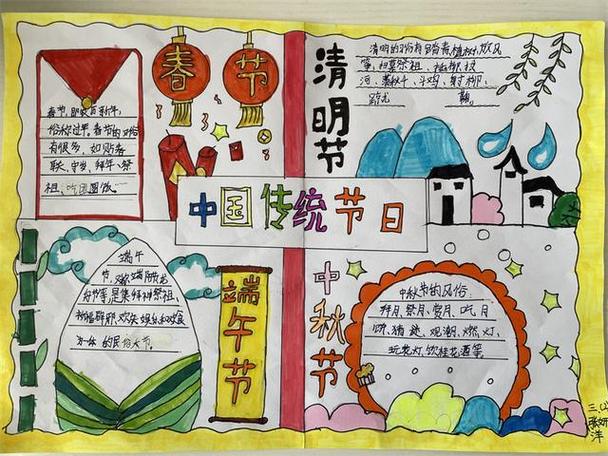 春节
春节,即农历新年,
俗称过年。春节的习俗
有很多,如贴春
联、守岁、拜年、祭
祖、吃团圆饭。
清明节
清明的习俗有踏青、植树、放风
筝、扫墓祭祖、
河、荡秋千、斗鸡、射柳、
中国传统节日
端午
节,又称端阳节、龙
舟节等,是集拜神祭祖、
祈福辟邪、欢庆娱乐和饮食
为一体的民俗大节。
端午节
中秋节
中秋节的风俗:
拜月、祭月、赏月、吃月
饼、猜谜、观潮、燃灯、
玩花灯、饮桂花酒等。
三、(2)
张妍
洋